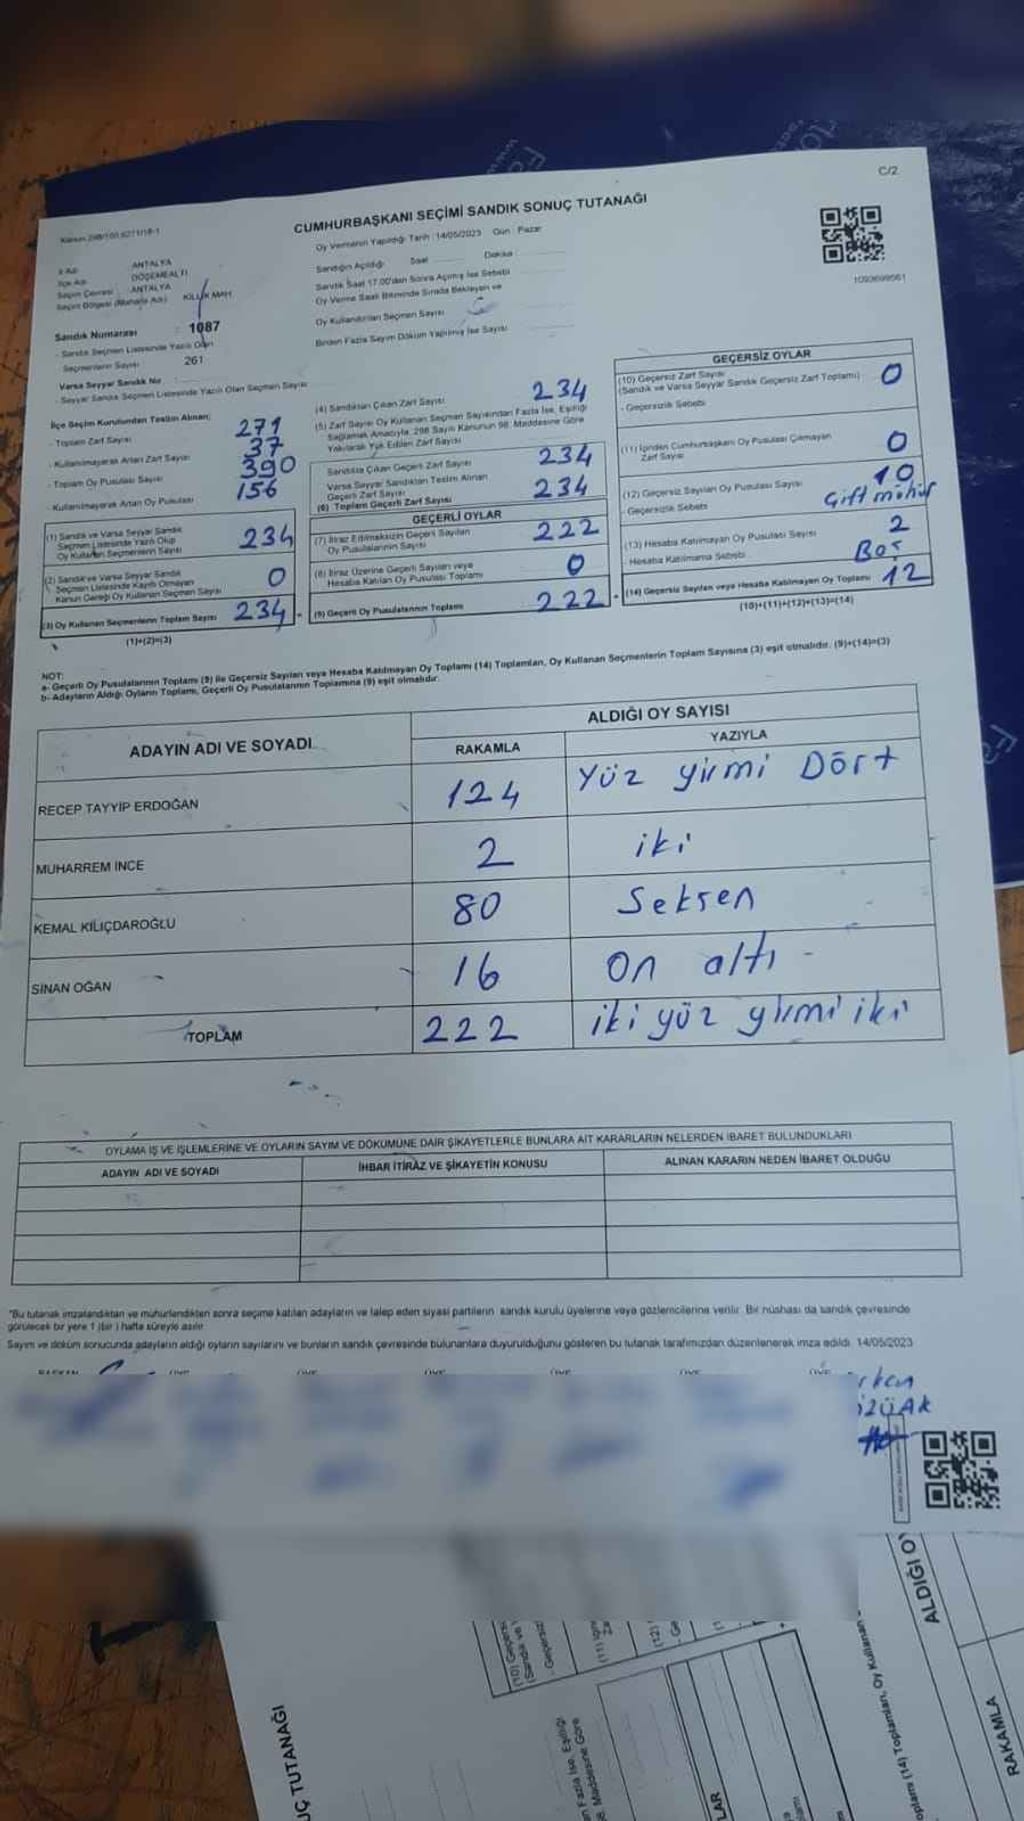 C/2
CUMHURBAŞKANI SEÇİMİ SANDIK SONUÇ TUTANAĞI
Oy Vermenin Yapıldığı Tarih :14/05/2023 Gün : Pazar
İl Adı ANTALYA
İlçe Adı DÖŞEMEALTI
Seçim Çevresi ANTALYA
Seçim Bölgesi (Mahalle Adı) KILLIK MAH.
Sandığın Açıldığı Saat Dakika
Sandık Saat 17.00'dan Sonra Açılmış İse Sebebi
Oy Verme Saati Bitiminde Sırada Bekleyen ve
Oy Kullandırılan Seçmen Sayısı
Birden Fazla Sayım Döküm Yapılmış İse Sayısı
Sandık Numarası : 1087
- Sandık Seçmen Listesinde Yazılı Olan
Seçmenlerin Sayısı 261
Varsa Seyyar Sandık No :
- Seyyar Sandık Seçmen Listesinde Yazılı Olan Seçmen Sayısı
İlçe Seçim Kurulundan Teslim Alınan;
- Toplam Zarf Sayısı 271
- Kullanılmayarak Artan Zarf Sayısı 37
- Toplam Oy Pusulası Sayısı 390
- Kullanılmayarak Artan Oy Pusulası 156
(1) Sandık ve Varsa Seyyar Sandık
Seçmen Listesinde Yazılı Olup
Oy Kullanan Seçmenlerin Sayısı 234
(2) Sandık ve Varsa Seyyar Sandık
Seçmen Listesinde Kayıtlı Olmayan
Kanun Gereği Oy Kullanan Seçmen Sayısı 0
(3) Oy Kullanan Seçmenlerin Toplam Sayısı 234
(1)+(2)=(3)
(4) Sandıktan Çıkan Zarf Sayısı 234
(5) Zarf Sayısı Oy Kullanan Seçmen Sayısından Fazla İse, Eşitliği
Sağlamak Amacıyla, 298 Sayılı Kanunun 98. Maddesine Göre
Yakılarak Yok Edilen Zarf Sayısı
Sandıkta Çıkan Geçerli Zarf Sayısı 234
Varsa Seyyar Sandıktan Teslim Alınan
Geçerli Zarf Sayısı
(6) Toplam Geçerli Zarf Sayısı 234
GEÇERLİ OYLAR
(7) İtiraz Edilmeksizin Geçerli Sayılan
Oy Pusulalarının Sayısı 222
(8) İtiraz Üzerine Geçerli Sayılan veya
Hesaba Katılan Oy Pusulası Toplamı 0
(9) Geçerli Oy Pusulalarının Toplamı 222
GEÇERSİZ OYLAR
(10) Geçersiz Zarf Sayısı
(Sandık ve Varsa Seyyar Sandık Geçersiz Zarf Toplamı) 0
- Geçersizlik Sebebi
(11) İçinden Cumhurbaşkanı Oy Pusulası Çıkmayan
Zarf Sayısı 0
(12) Geçersiz Sayılan Oy Pusulası Sayısı 10
- Geçersizlik Sebebi Çift mühür
(13) Hesaba Katılmayan Oy Pusulası Sayısı 2
- Hesaba Katılmama Sebebi Boş
(14) Geçersiz Sayılan veya Hesaba Katılmayan Oy Toplamı 12
(10)+(11)+(12)+(13)=(14)
NOT:
a- Geçerli Oy Pusulalarının Toplamı (9) ile Geçersiz Sayılan veya Hesaba Katılmayan Oy Toplamı (14) Toplamları, Oy Kullanan Seçmenlerin Toplam Sayısına (3) eşit olmalıdır. (9)+(14)=(3)
b- Adayların Aldığı Oyların Toplamı, Geçerli Oy Pusulalarının Toplamına (9) eşit olmalıdır.
ADAYIN ADI VE SOYADI ALDIĞI OY SAYISI
RAKAMLA YAZIYLA
RECEP TAYYİP ERDOĞAN 124 Yüz yirmi Dört
MUHARREM İNCE 2 iki
KEMAL KILIÇDAROĞLU 80 Seksen
SİNAN OĞAN 16 On altı
TOPLAM 222 iki yüz yirmi iki
OYLAMA İŞ VE İŞLEMLERİNE VE OYLARIN SAYIM VE DÖKÜMÜNE DAİR ŞİKAYETLERLE BUNLARA AİT KARARLARIN NELERDEN İBARET BULUNDUKLARI
ADAYIN ADI VE SOYADI İHBAR İTİRAZ VE ŞİKAYETİN KONUSU ALINAN KARARIN NEDEN İBARET OLDUĞU
*Bu tutanak imzalandıktan ve mühürlendikten sonra seçime katılan adayların ve talep eden siyasi partilerin sandık kurulu üyelerine veya gözlemcilerine verilir. Bir nüshası da sandık çevresinde
görülecek bir yere 1 (bir) hafta süreyle asılır.
Sayım ve döküm sonucunda adayların aldığı oyların sayılarını ve bunların sandık çevresinde bulunanlara duyurulduğunu gösteren bu tutanak tarafımızdan düzenlenerek imza edildi. 14/05/2023
UÇ TUTANAĞI
ALDIĞI OY
RAKAMLA